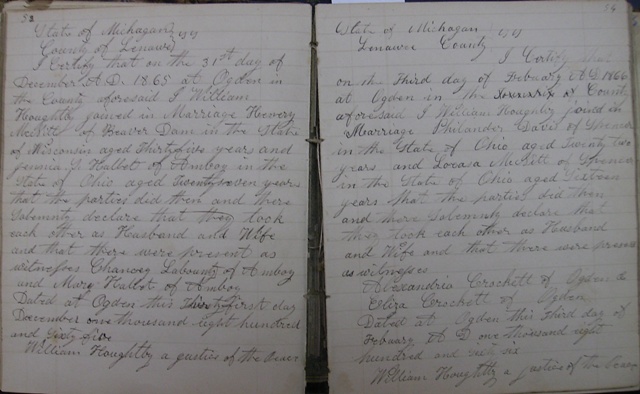 52
State of Michagan
County of Lenawee } ss
I Certify that on the 31st day of
December A.D. 1865 at Ogden in
the County aforesaid I William
Houghtby joined in Marriage Henery
of Beaver Dam in the State
of Wisconsin aged Thirtyfive years and
J. Halbot of Amboy in the
State of Ohio aged Twentyseven years
that the parties did then and there
Solemnly declare that they took
each other as Husband and Wife
and that there were present as
witnesses Chancey Labounty of Amboy
and Mary Halbot of Amboy
Dated at Ogden this Thirtyfirst day
December one thousand eight hundred
and Sixty five
William Houghtby a justice of the Peace
54
State of Michagan } ss
Lenawee County
I Certify that
on the Third day of February A D 1866
at Ogden in the County
aforesaid I William Houghtby joined in
Marriage Philander Davis of
in the State of Ohio aged Twenty two
years and of
in the State of Ohio aged Sixteen
years that the parties did then
and there Solemnly declare that
they took each other as Husband
and Wife and that there were present
as witnesses
Alexandria Crockett of Ogden &
Eliza Crockett of Ogden
Dated at Ogden this Third day of
Febuary A D one thousand eight
hundred and sixty six
William Houghtby a justice of the Peace